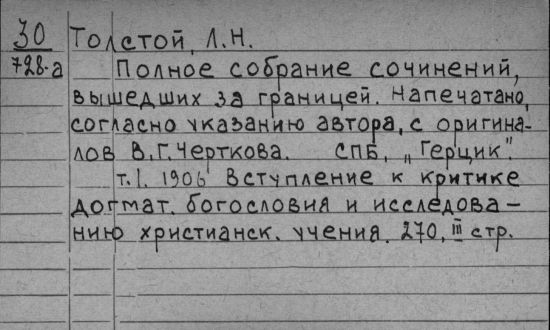 30 Толстой, Л.Н.
728-а Полное собрание сочинений,
вышедших за границей. Напечатано,
согласно указанию автора, с оригина-
лов В.Г.Черткова. СПБ, „Герцик".
т.I. 1906 Вступление к критике
догмат. богословия и исследова-
нию христианск. учения. 270, III стр.